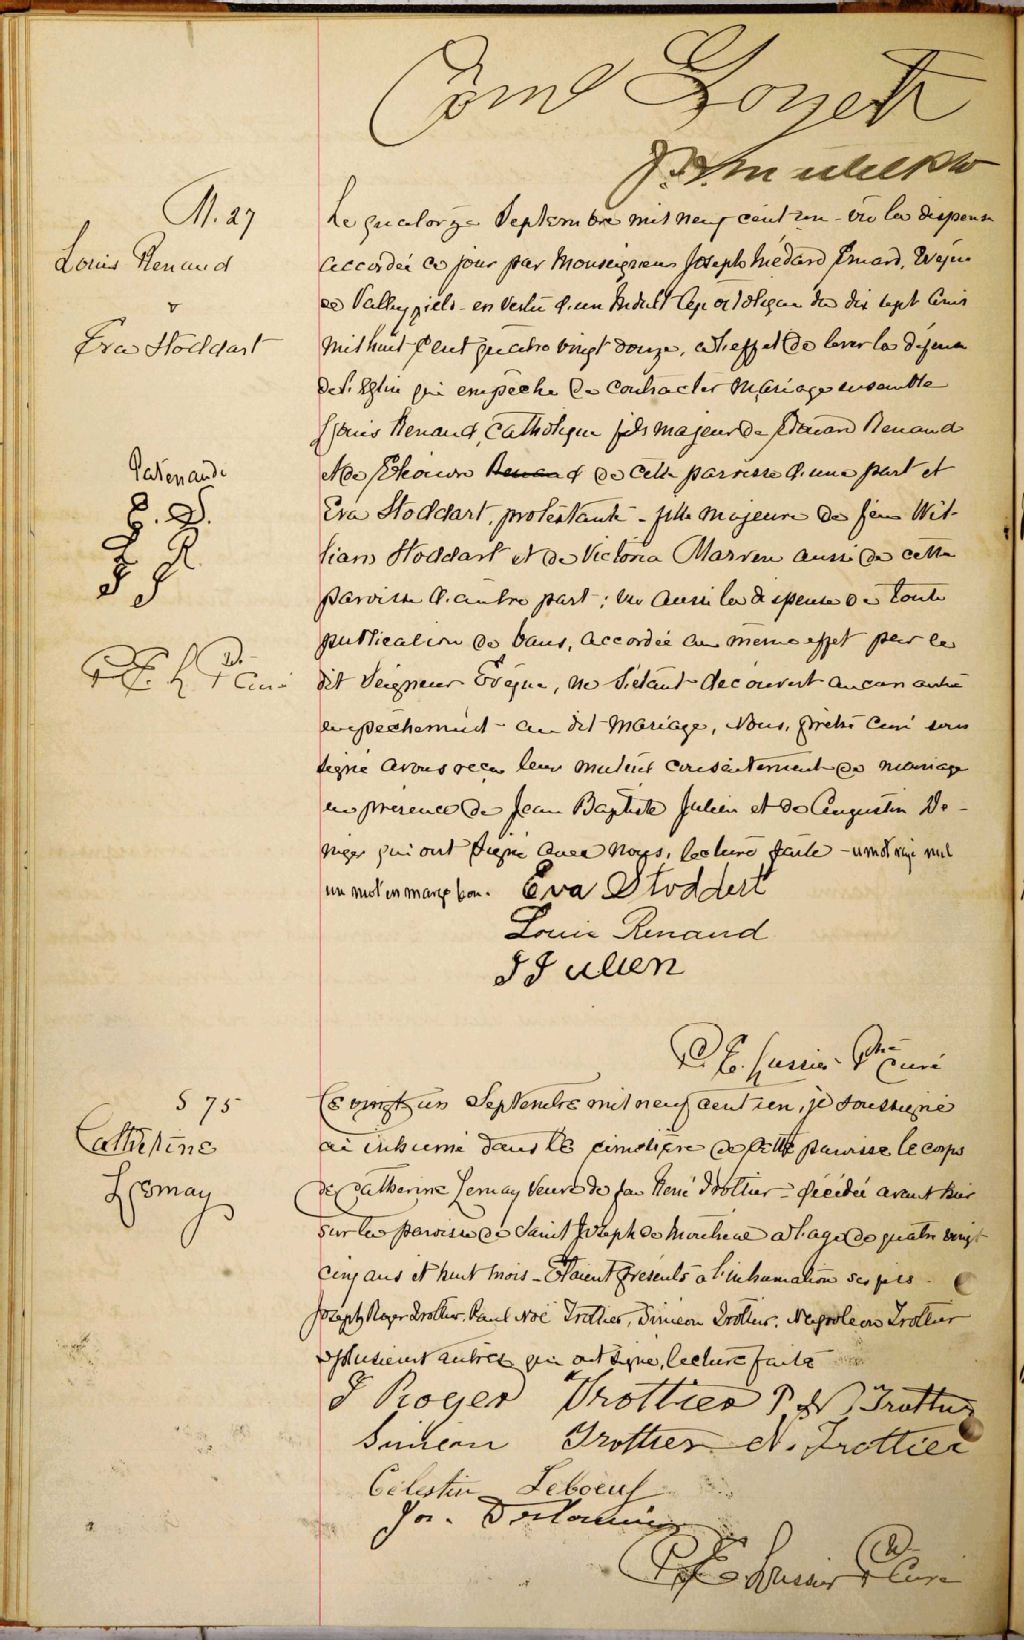 M. 27
Louis Renaud
&
Eva Stoddart
Patenaude
E. S.
L R
J J
P. E. L Ptre Curé
Le quatorze Septembre mil neuf cent un - vu la dispense
accordée ce jour par Monseigneur Joseph Médard Emard, Evêque
de Valleyfield - en vertu d'un Indult Apostolique du dix sept
mil huit cent quatre vingt douze, à l'effet de lever la défense
de l'Eglise qui empêche de contracter mariage ensemble
Louis Renaud, catholique fils majeur de Edouard Renaud
et de Renaud de cette paroisse d'une part et
Eva Stoddart, protestante - fille majeure de feu Wil-
liam Stoddart et de Victoria aussi de cette
paroisse d'autre part ; vu aussi la dispense de toute
publication de bans, accordée au même effet par le
dit Seigneur Evêque, ne s'étant découvert aucun autre
empêchement - au dit mariage, Nous, prêtre curé sous
signé avons reçu leur mutuel consentement de mariage
en présence de Jean Baptiste Julien et de Augustin De-
niger qui ont signé avec nous, lecture faite - un mot rayé nul
un mot en marge bon. Eva Stoddert
Louis Renaud
J J ulien
P. E. Lussier Ptre Curé
S 75
Catherine
Lemay
Le vingt un Septembre mil neuf cent un, je soussigné
ai inhumé dans le cimetière de cette paroisse le corps
de Catherine Lemay veuve de feu René Trottier - décédée avant hier
sur la paroisse de Saint Joseph de Montréal à l'age de quatre vingt
cinq ans et huit mois - Etaient présents à l'inhumation ses fils
Joseph Roger Trottier, Paul Noé Trottier, Siméon Trottier, Napoléon Trottier
& plusieurs autres qui ont signé, lecture faite
J Roger Trottier P N Trottier
Siméon Trottier N. Trottier
Célestin Leboeuf
Jos.
P. E Lussier Ptre Curé